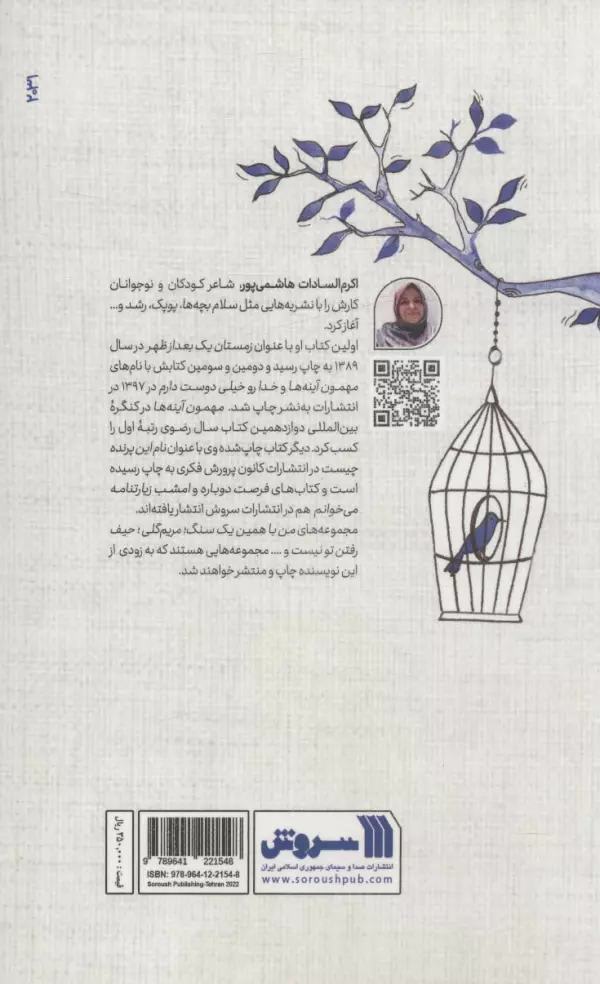 ۲۰۳۶
اکرم‌السادات هاشمی‌پور، شاعر کودکان و نوجوانان
کارش را با نشریه‌هایی مثل سلام بچه‌ها، پوپک، رشد و...
آغاز کرد.
اولین کتاب او با عنوان زمستان یک بعدازظهر در سال
۱۳۸۹ به چاپ رسید و دومین و سومین کتابش با نام‌های
مهمون آینه‌ها و خدا رو خیلی دوست دارم در ۱۳۹۷ در
انتشارات به‌نشر چاپ شد. مهمون آینه‌ها در کنگرۀ
بین‌المللی دوازدهمین کتاب سال رضوی رتبۀ اول را
کسب کرد. دیگر کتاب چاپ‌شده وی با عنوان نام این پرنده
چیست در انتشارات کانون پرورش فکری به چاپ رسیده
است و کتاب‌های فرصت دوباره و امشب زیارتنامه
می‌خوانم هم در انتشارات سروش انتشار یافته‌اند.
مجموعه‌های من با همین یک سنگ؛ مریم‌گلی؛ حیف
رفتن تو نیست و .... مجموعه‌هایی هستند که به زودی از
این نویسنده چاپ و منتشر خواهند شد.
سروش
انتشارات صدا و سیمای جمهوری اسلامی ایران
www.soroushpub.com
9 789641 221548
ISBN: 978-964-12-2154-8
Soroush Publishing-Tehran 2022
قیمت: ۳۵۰,۰۰۰ ریال